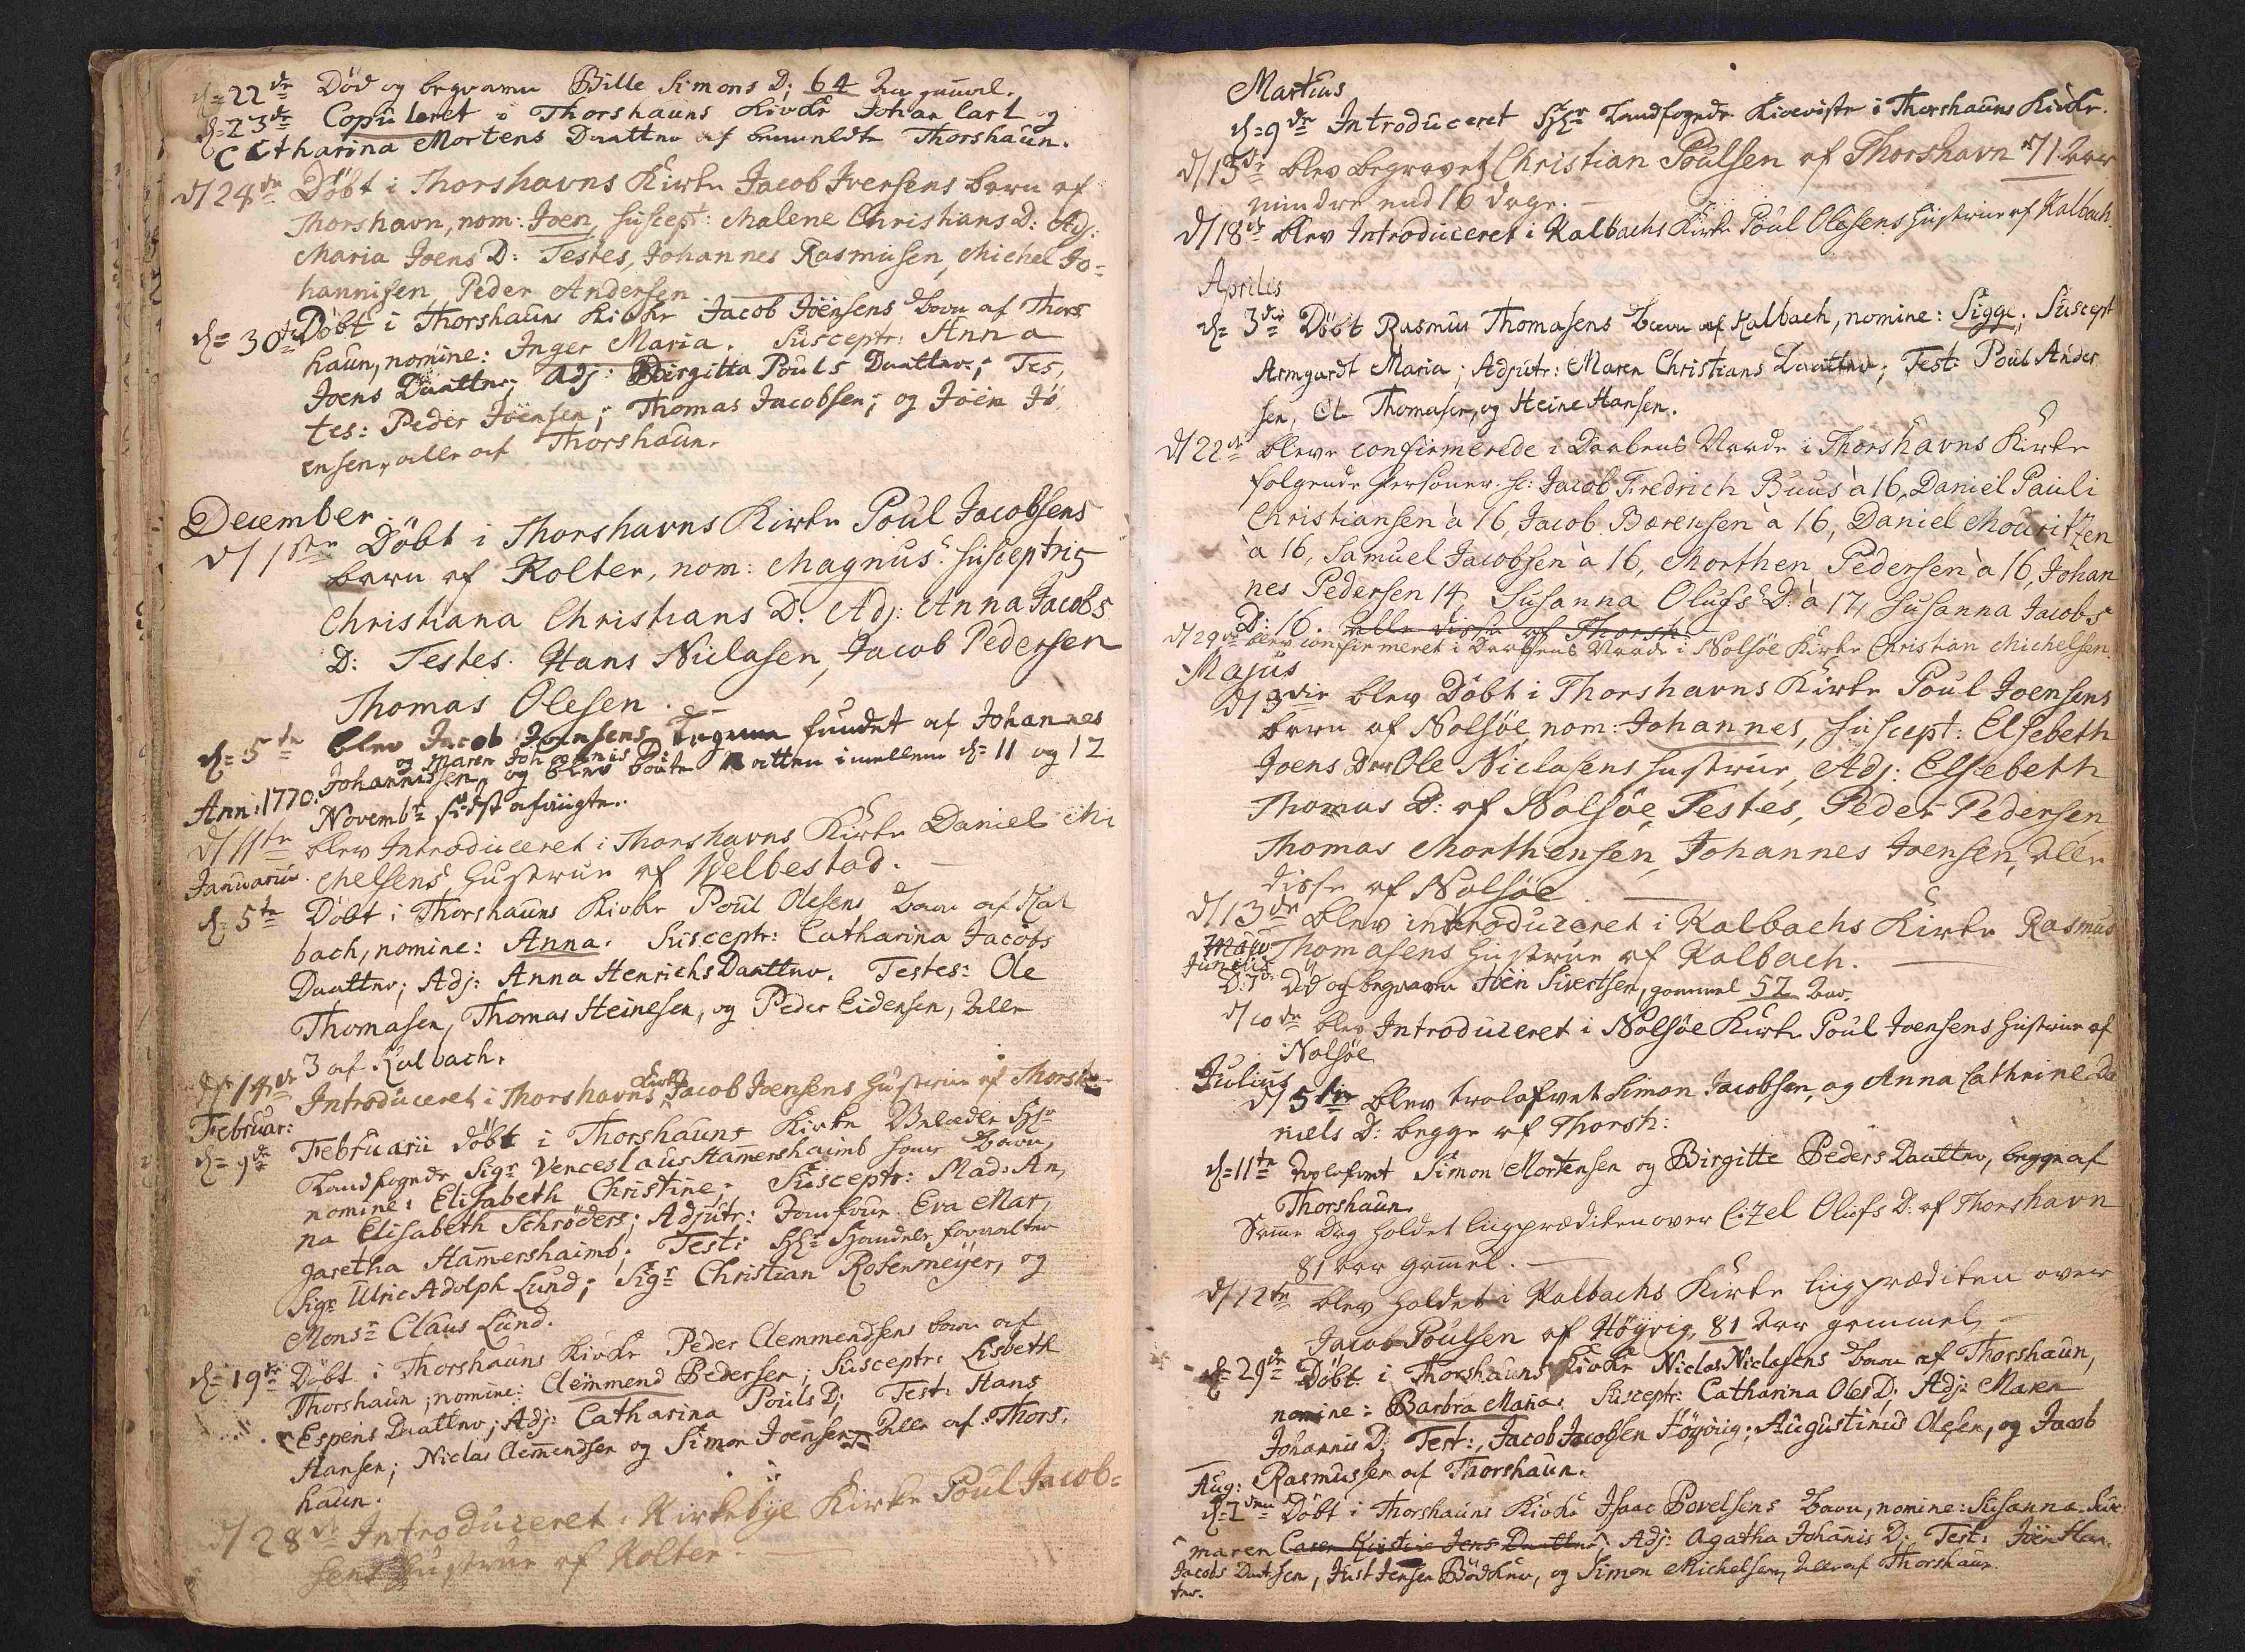 d: 22de Död og begraven Bille Simons D; 64 Aar gammel.
d: 23de Copuleret i Thorshauns Kirke Johan Carl og
Catharina Mortens Daatter af bemeldte Thorshaun.
d/ 24de Döbt i Thorshavns Kirke Jacob Iversens barn af
Thorshavn, nom: Joen, suscept: Malene Christians D: Adj:
Maria Joens D: Testes, Johannes Rasmusen, Michel Jo=
hannisen, Peder Andersen
d: 30te Döbt i Thorshauns Kirke Jacob Jöensens Barn af Thors
haun, nomine: Inger Maria. Susceptr: Anna
Joens Daatter; Adj: Birgitta Pouls Daatter; Tes,
tes: Peder Jöensen; Thomas Jacobsen; og Jöen Jö
ensen, alle af Thorshaun.
December.
d/ 1ste Döbt i Thorshavns Kirke Poul Jacobsens
barn af Kolter, nom: Magnus. susceptrix
Christiana Christians D. Adj: Anna Jacobs
D: Testes. Hans Niclasen, Jacob Pedersen
Thomas Olesen.
d: 5te blev Jacob Joensens fundet af Johannes
og Maren Johannis D:
Johannissen, og blev Natten imellem d: 11 og 12
Ann: 1770. Novembr sidst
d/ 11te blev Introduceret i Thorshavns Kirke Daniel Mi
Januarii. chelsens Hustrue af Velbestad.
d: 5te Döbt i Thorshauns Kirke Poul Olesens Barn af Kal
bach, nomine: Anna. Susceptr: Catharina Jacobs
Daatter; Adj: Anna Henrichs Daatter. Testes: Ole
Thomasen, Thomas Heinesen, og Peder Eidensen, alle
3 af Kalbach.
d: 14de Introduceret i Thorshavns Kirke Jacob Joensens Hustrue af Thorsh:
Februar:
d: 9de Februarii döbt i Thorshauns Kirke Velædle Hr
Landfogde Sigr Venceslaus Hamershaimb hans Barn,
nomine: Elisabeth Christine; Susceptr: Mad: An,
na Elisabeth Schröders; Adjutr: Jomfrue Eva Mar,
gretha Hamershaimb; Test: Hr Handels forvalter
Sigr Ulric Adolph Lund; Sigr Christian Rosenmeyer, og
Monsr Claus Lund.
d: 19de Döbt i Thorshauns Kirke Peder Clemmendsens barn af
Thorshaun; nomine: Clemmend Pedersen; Susceptr: Lisbeth
Espens Daatter; Adj: Catharina Pouls D; Test: Hans
Hansen; Niclas Clemendsen og Simon Joensen, alle af Thors,
haun.
d/ 28de Introduceret i Kirkebye Kirke Poul Jacob=
sens Hustrue af Kolter.
Martius
d: 9de Introduceret Hr Landfogde Kiæriste i Thorshauns Kirke.
d/ 15de blev begravet Christian Poulsen af Thorshavn 71 Aar
mindre end 16 dage.
d/ 18de blev Introduceret i Kalbachs Kirke Poul Olesens Hustrue af Kalbach.
Aprilis
d: 3die Döbt Rasmus Thomasens Barn af Kalbach, nomine: Sigge; Suscept
Armgardt Maria; Adjutr: Maren Christians Daatter; Test: Poul Ander
sen, Ol Thomasen, og Heine Hansen.
d/ 22de bleve confirmerede i Daabens Naade i Thorshavns Kirke
folgende Personer. sc: Jacob Fredrich Buus à 16, Daniel Pauli
Christiansen à 16, Jacob Bærensen à 16, Daniel Mouritzen
à 16, Samuel Jacobsen à 16, Morthen Pedersen à 16, Johan
nes Pedersen 14, Susanna Olufs D: à 17, Susanna Jacobs
D: 16. alle disse af Thorsh:
d/ 29de blev confirmeret i Daabens Naade i Nolsöe Kirke Christian Michelsen.
Majus
d/ 3die blev Döbt i Thorshavns Kirke Poul Joensens
barn af Nolsöe, nom: Johannes, suscept: Elsebeth
Joens D Ole Niclasens Hustrue, Adj: Elsebeth
Thomas D: af Nolsöe, Testes, Peder Pedersen,
Thomas Morthensen, Johannes Joensen, alle
disse af Nolsöe.
d/ 13de blev introduceret i Kalbachs Kirke Rasmus
Thomasens Hustrue af Kalbach.
Junius
D: 7de Död og begraven Jöen Sivertsen, gammel 52 Aar.
d/ 10de blev Introduceret i Nolsöe Kirke Poul Joensens Hustrue af
Nolsöe
Julius
d/ 5te blev trolofvet Simon Jacobsen, og Anna Cathrine Da
niels D: begge af Thorsh:
d: 11te Trolofvet Simon Mortensen og Birgitte Peders Daatter, begge af
Thorshaun.
Samme Dag holdet liigprædiken over Cizel Olufs D. af Thorshavn
81 Aar gammel.
d/ 12te blev holdet i Kalbachs Kirke liigprædiken over
Jacob Poulsen af Höyvig, 81 Aar gammel,
d: 29de Döbt i Thorshauns Kirke Niclas Niclasens barn af Thorshaun,
nomine: Barbra Maria. Susceptr: Catharina Oles D. Adj: Maren
Johannis D; Test:, Jacob Jacobsen Höyvig; Augustinus Olesen, og Jacob
Rasmussen af Thorshaun.
Aug:
d: 2den Döbt i Thorshauns Kirke Isaac Povelsens Barn, nomine: Susanna. Sus:
maren Caren Kirstine Jens Daatter; Adj: Agatha Johannis D; Test: Jöen Han,
Jacobs Daat sen, Just Jensen Bödker, og Simon Michelsen, alle af Thorshaun
ter.